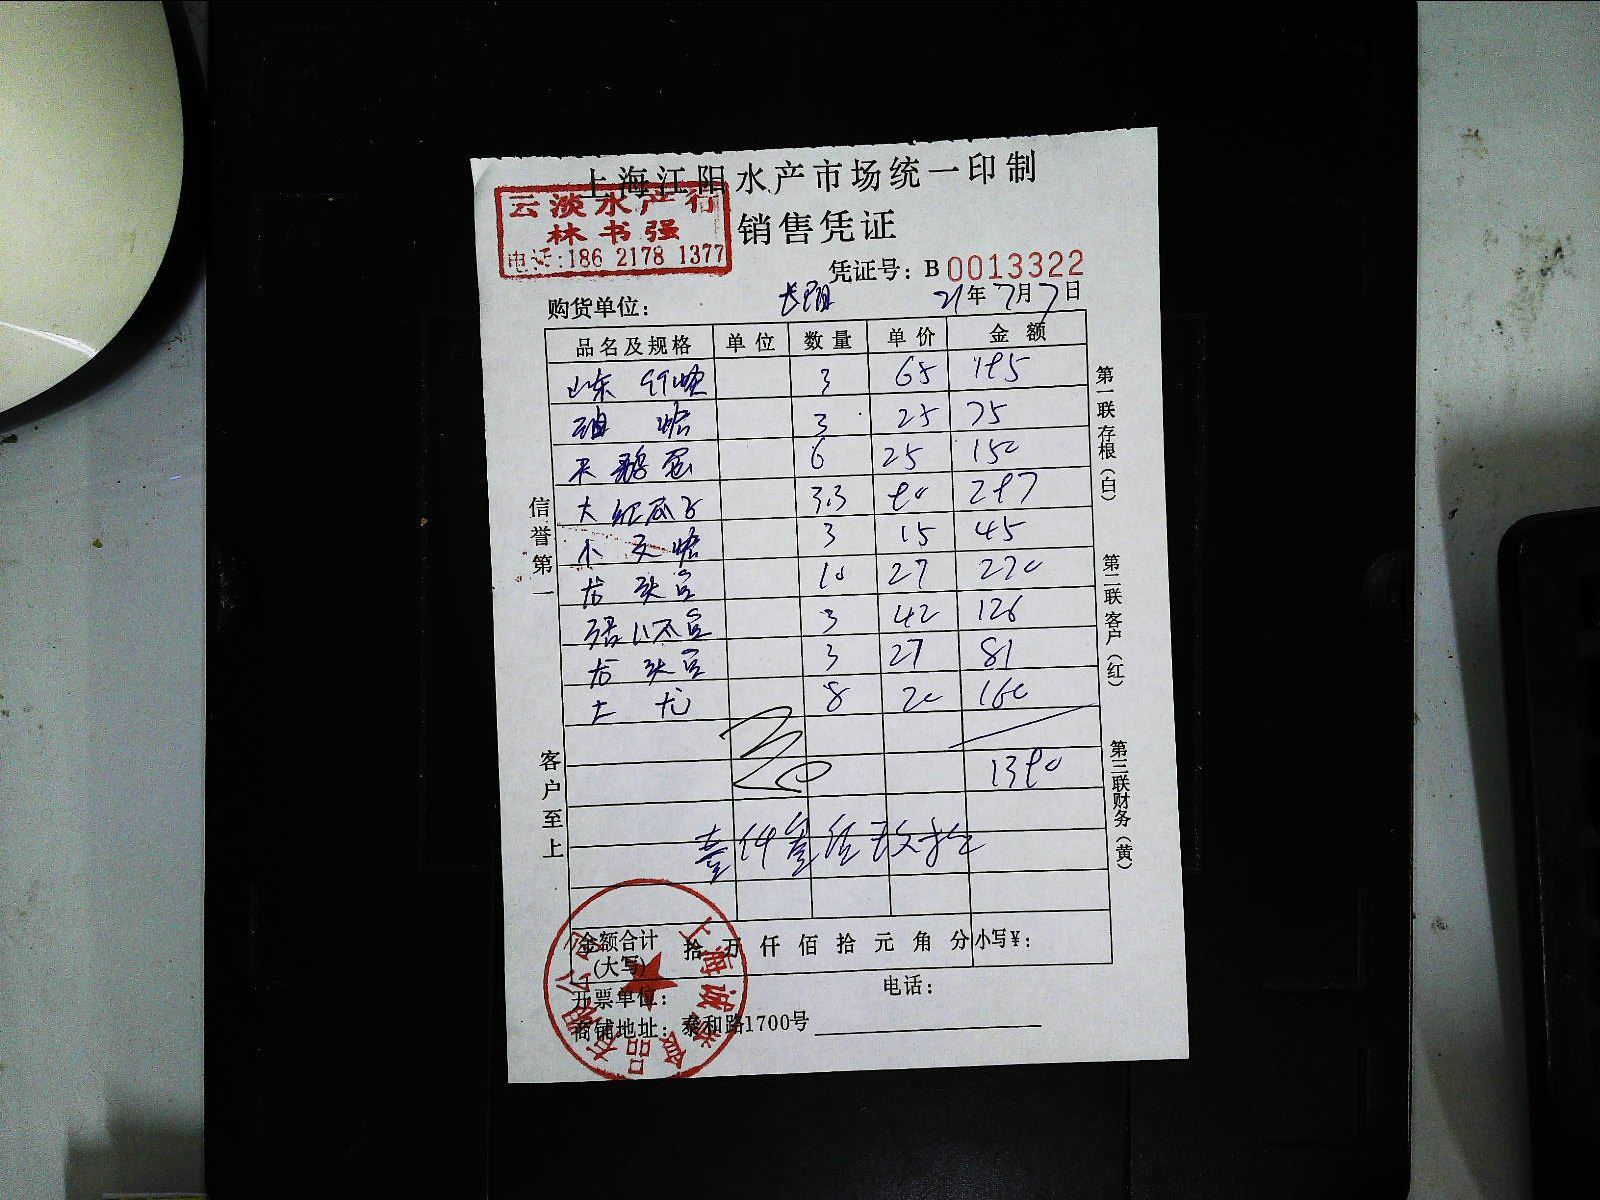 上海江阳水产市场统一印制
云淡水产行
林书强
电话:186 2178 1377
销售凭证
凭证号: B 0013322
购货单位:
21年7月7日
品名及规格 单位 数量 单价 金额
山东 3 65 195
3 25 75
6 25 150
大红瓜子 3.3 90 297
小 3 15 45
龙头 10 27 270
3 42 126
龙头 3 27 81
8 20 160
1390
壹仟叁佰玖拾
金额合计(大写) 拾 万 仟 佰 拾 元 角 分 小写¥:
开票单位: 电话:
商铺地址: 泰和路1700号
信誉第一
客户至上
第一联存根(白)
第二联客户(红)
第三联财务(黄)